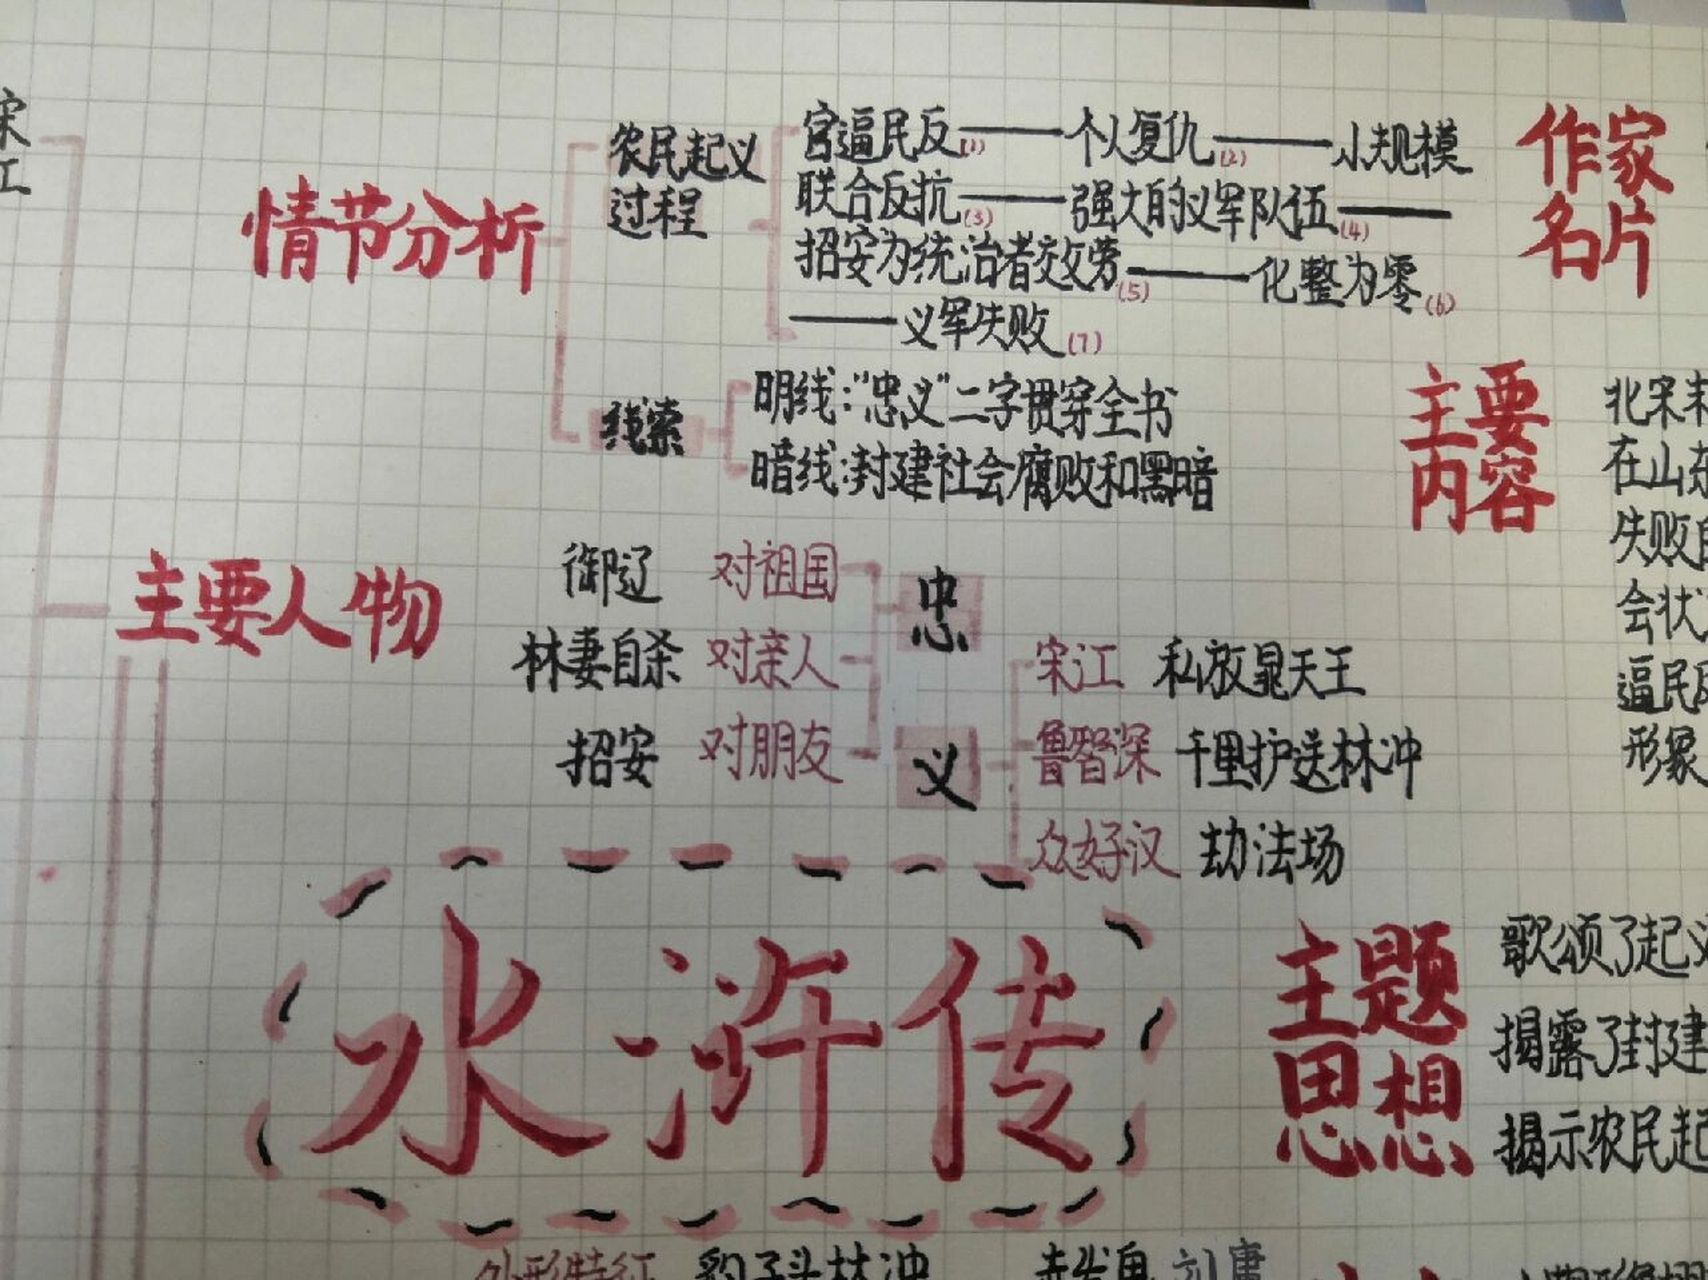 宋
江
情节分析
农民起义
过程
官逼民反(1)——个人复仇(2)——小规模
联合反抗(3)——强大的义军队伍(4)——
招安为统治者效劳(5)——化整为零(6)
——义军失败(7)
线索
明线:“忠义”二字贯穿全书
暗线:封建社会腐败和黑暗
作家
名片
主要
内容
北宋
在山东
失败
会状
逼民
形象
主要人物
御辽 对祖国
林妻自杀 对亲人
招安 对朋友
忠
义
宋江 私放晁天王
鲁智深 千里护送林冲
众好汉 劫法场
水浒传
主题
思想
歌颂了起义
揭露了封建
揭示农民起
外形特征 豹子头林冲 赤发鬼 刘唐